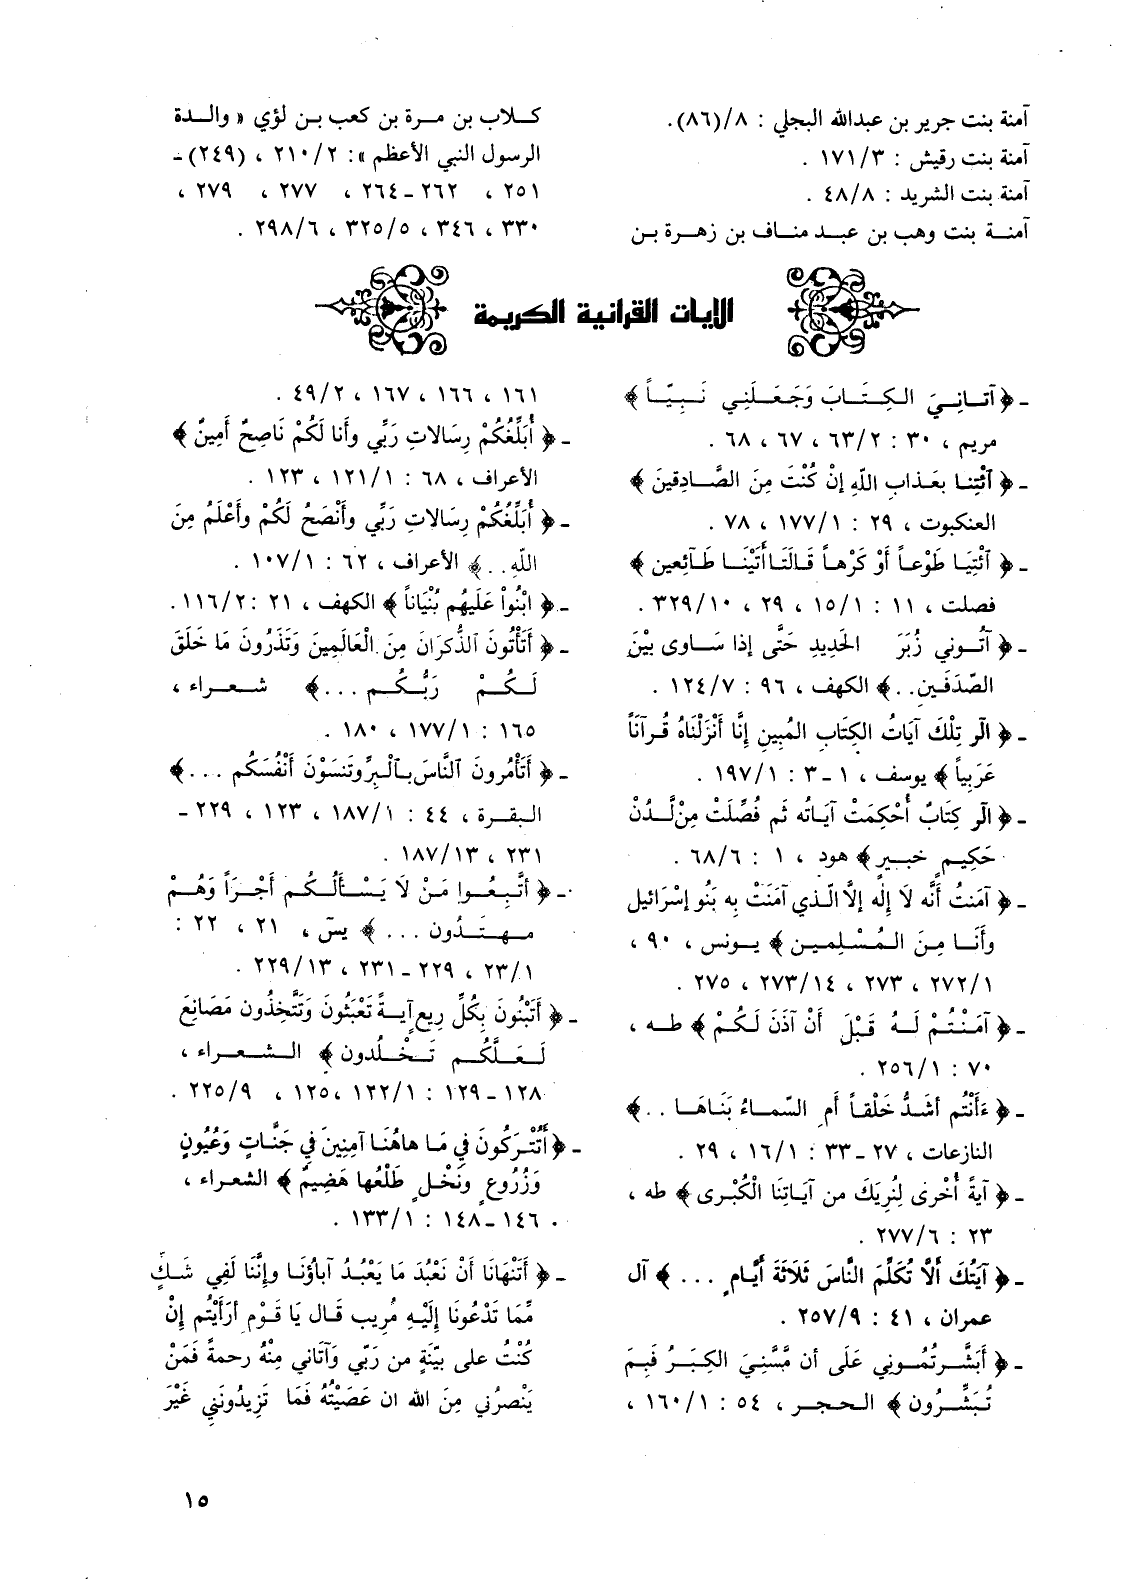 آمنة بنت جرير بن عبدالله البجلي : ٨/(٨٦).
آمنة بنت رقيش : ١٧١/٣ .
آمنة بنت الشريد : ٤٨/٨ .
آمنـة بنت وهب بن عبـد منـاف بن زهـرة بـن
كـلاب بن مـرة بن كعب بـن لؤي « والـدة
الرسول النبي الأعظم »: ٢١٠/٢ ، (٢٤٩)ـ
٢٥١ ، ٢٦٢ـ٢٦٤ ، ٢٧٧ ، ٢٧٩ ،
٣٣٠ ، ٣٤٦ ، ٣٢٥/٥ ، ٢٩٨/٦ .
الايات القرانية الكريمة
ـ ﴿ آتـانِـيَ الـكِـتَـابَ وَجَـعَـلَنِي نَـبِـيّـاً ﴾
مريم ، ٣٠ : ٦٣/٢ ، ٦٧ ، ٦٨ .
ـ ﴿ آئْتِنـا بعَـذاب اللّهِ إنْ كُنْتَ مِنَ الصَّـادِقينَ ﴾
العنكبوت ، ٢٩ : ١٧٧/١ ، ٧٨ .
ـ ﴿ آئْتِيَا طَوْعـاً أوْ كَرْهـاً قَـالَتَـا أتَيْنَـا طَـآئِعين ﴾
فصلت ، ١١ : ١٥/١ ، ٢٩ ، ٣٢٩/١٠ .
ـ ﴿ آتُـوني زُبَرَ الحَديدِ حَتَّى إذا سَـاوى بيْنَ
الصّدَفَـينِ..﴾ الكهف ، ٩٦ : ١٢٤/٧ .
ـ ﴿ الٓر تِلْكَ آيَاتُ الكِتَابِ المُبينِ إنَّا أنْزَلْنَاهُ قُـرآنَاً
عَرَبياً ﴾ يوسف ، ١ـ٣ : ١٩٧/١ .
ـ ﴿ الٓر كِتَابٌ أُحْكِمَتْ آيَـاتُه ثم فُصِّلَتْ مِنْ لَّـدُنْ
حَكِيـمٍ خبـيرٍ ﴾ هود ، ١ : ٦٨/٦ .
ـ ﴿ آمَنتُ أنَّه لاَ إلٰه إلاَّ الّذي آمَنَتْ بِهِ بَنُو إسْرَائيل
وأنَـا مِـنَ الـمُـسْـلِمـين ﴾ يـونس ، ٩٠ ،
٢٧٢/١ ، ٢٧٣ ، ٢٧٣/١٤ ، ٢٧٥ .
ـ ﴿ آمَـنْـتُـمْ لَـهُ قَـبْلَ أنْ آذَنَ لَـكُـمْ ﴾ طـه ،
٧٠ : ٢٥٦/١ .
ـ ﴿ ءَأنْتُم أشَـدُّ خَلْقـاً أمِ السّمـاءُ بَنَاهَـا ..﴾
النازعات ، ٢٧ ـ٣٣ : ١٦/١ ، ٢٩ .
ـ ﴿ آيةً أُخْرى لِنُرِيَكَ من آيَـاتِنَا الْكُبْرى ﴾ طه ،
٢٣ : ٢٧٧/٦ .
ـ ﴿ آيَتُكَ ألاَّ تُكَلِّمَ النَّاسَ ثَلاَثَةَ أيَّـامٍ ... ﴾ آل
عمران ، ٤١ : ٢٥٧/٩ .
ـ ﴿ أبَشَّـرتُمُـوني عَلَى أن مَّسَّنِيَ الكِـبَرُ فَبِمَ
تُـبَشِّـرُون ﴾ الـحـجـر ، ٥٤ : ١٦٠/١ ،
١٦١ ، ١٦٦ ، ١٦٧ ، ٤٩/٢ .
ـ ﴿ أُبَلِّغُكُمْ رِسَالاَتِ رَبِّي وأَنا لَكُمْ نَاصِحٌ أَمِينٌ ﴾
الأعراف ، ٦٨ : ١٢١/١ ، ١٢٣ .
ـ ﴿ أُبَلِّغُكُمْ رِسَالاَتِ رَبِّي وأَنْصَحُ لَكُمْ وأَعْلَمُ مِنَ
اللّهِ ..﴾ الأعراف ، ٦٢ : ١٠٧/١ .
ـ ﴿ ابْنُواْ عَلَيهُم بُنْيَاناً ﴾ الكهف ، ٢١ :١١٦/٢.
ـ ﴿ أَتَأْتُونَ الذُّكرَانَ مِنَ الْعَالَمِينَ وَتَذَرُونَ مَا خَلَقَ
لَـكُـمْ رَبُّـكُـم ...﴾ شـعـراء ،
١٦٥ : ١٧٧/١ ، ١٨٠ .
ـ ﴿ أَتَأْمُرونَ النَّاسَ بـالْبِرِّ وتَنسَوْنَ أنْفُسَكُم ...﴾
البقـرة ، ٤٤ : ١٨٧/١ ، ١٢٣ ، ٢٢٩ ـ
٢٣١ ، ١٨٧/١٣ .
ـ ﴿ أتَّـبِعُـوا مَـنْ لاَ يَـسْـألُـكُـم أجْـرَاً وَهُـمْ
مـهـتَـدُون ... ﴾ يسٓ ، ٢١ ، ٢٢ :
٢٣/١ ، ٢٢٩ ـ٢٣١ ، ٢٢٩/١٣ .
ـ ﴿ أَتَبْنُونَ بِكُلِّ رِيعٍ آيـةً تَعْبَثُونَ وَتَتَّخِذُون مَصَانِعَ
لَـعَـلَّكُـم تَـخْـلُدون ﴾ الـشـعـراء ،
١٢٨ ـ١٢٩ : ١٢٢/١ ،١٢٥ ، ٢٢٥/٩ .
ـ ﴿ أَتُتْرَكُونَ فِي مَا هاهُنَا آمِنِينَ فِي جَنَّاتٍ وَعُيُونٍ
وَزُرُوعٍ ونَخْلٍ طَلْعُها هَضِيمٌ ﴾ الشعراء ،
١٤٦ ـ١٤٨ : ١٣٣/١ .
ـ ﴿ أتَنْهَانَا أنْ نَعْبُدَ مَا يَعْبُـدُ آباؤُنَـا وإنَّنَا لَفِي شَـكٍّ
مِّمَا تَدْعُونَا إلَيْـهِ مُريب قَـال يَا قَـوْمِ أرَأيْتُم إنْ
كُنْتُ على بيّنَةٍ من رَبّي وَآتَاني مِنْهُ رحمةً فَمَنْ
يَنْصرُني مِنَ الله ان عَصَيْتُهُ فَمَا تَزِيدُونَنِي غَيْرَ
١٥